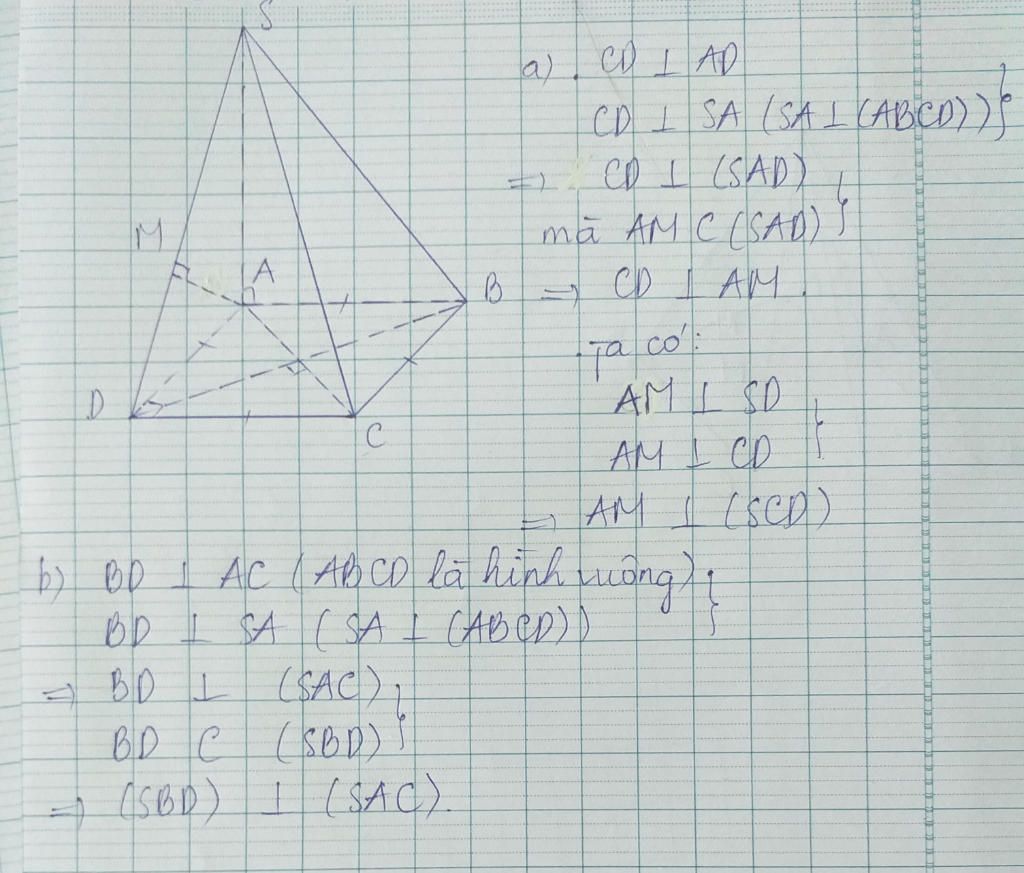 S
M
A
B
D
C
a) . CD ⊥ AD
CD ⊥ SA (SA ⊥ (ABCD)) }
=> CD ⊥ (SAD)
mà AM ⊂ (SAD) }
=> CD ⊥ AM .
. Ta có:
AM ⊥ SD
AM ⊥ CD }
=> AM ⊥ (SCD)
b) BD ⊥ AC (ABCD là hình vuông) }
BD ⊥ SA (SA ⊥ (ABCD))
=> BD ⊥ (SAC) }
BD ⊂ (SBD)
=> (SBD) ⊥ (SAC).